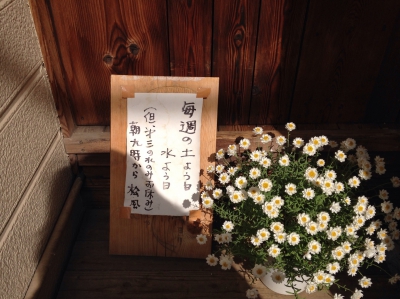 毎週の土よう日
水よう日
(但し第三の水のみお休み)
朝九時から 松風